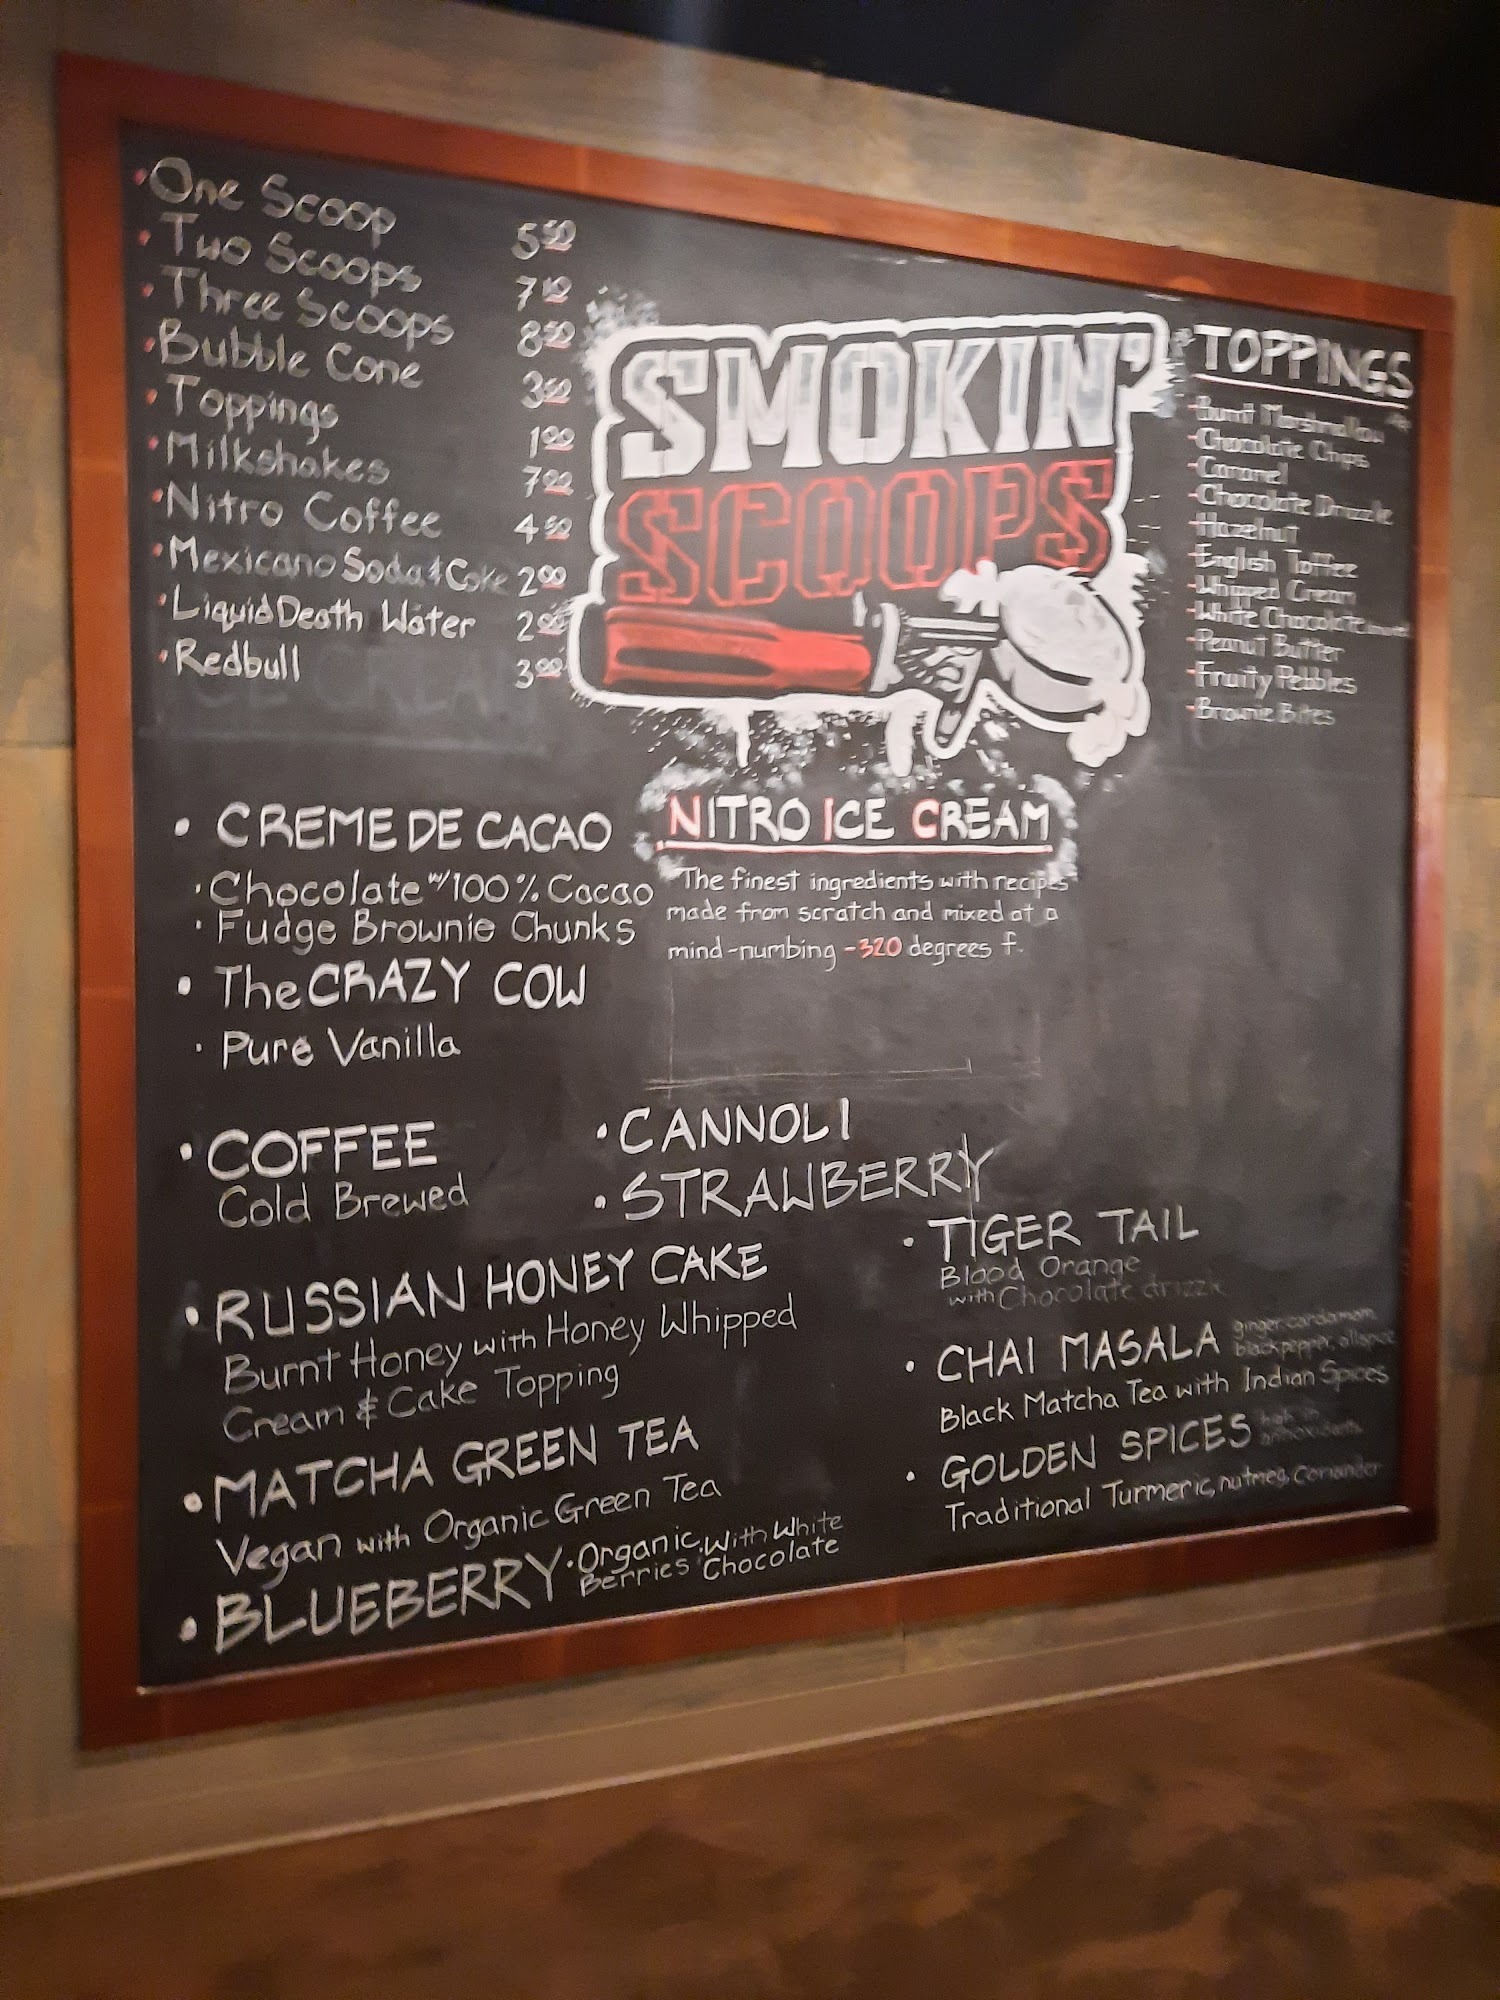 ·One Scoop 5⁵⁰
·Two Scoops 7¹⁰
·Three Scoops 8⁵⁰
·Bubble Cone 3⁵⁰
·Toppings 1⁰⁰
·Milkshakes 7⁰⁰
·Nitro Coffee 4⁵⁰
·Mexicano Soda & Coke 2⁰⁰
·Liquid Death Water 2⁵⁰
·Redbull 3⁰⁰
SMOKIN'
SCOOPS
NITRO ICE CREAM
"The finest ingredients with recipes
made from scratch and mixed at a
mind-numbing -320 degrees f.
TOPPINGS
-Burnt Marshmallow
-Chocolate Chips
-Caramel
-Chocolate Drizzle
-Hazelnut
-English Toffee
-Whipped Cream
-White Chocolate
-Peanut Butter
-Fruity Pebbles
-Brownie Bites
• CREME DE CACAO
·Chocolate w/ 100% Cacao
·Fudge Brownie Chunks
• The CRAZY COW
· Pure Vanilla
• COFFEE
Cold Brewed
• CANNOLI
• STRAWBERRY
• RUSSIAN HONEY CAKE
Burnt Honey with Honey Whipped
Cream & Cake Topping
• MATCHA GREEN TEA
Vegan with Organic Green Tea
• BLUEBERRY ·Organic Berries ·With White Chocolate
• TIGER TAIL
Blood Orange
with Chocolate drizzle
• CHAI MASALA ginger, cardamom, black pepper, allspice
Black Matcha Tea with Indian Spices
• GOLDEN SPICES high in antioxidants
Traditional Turmeric, nutmeg, Coriander